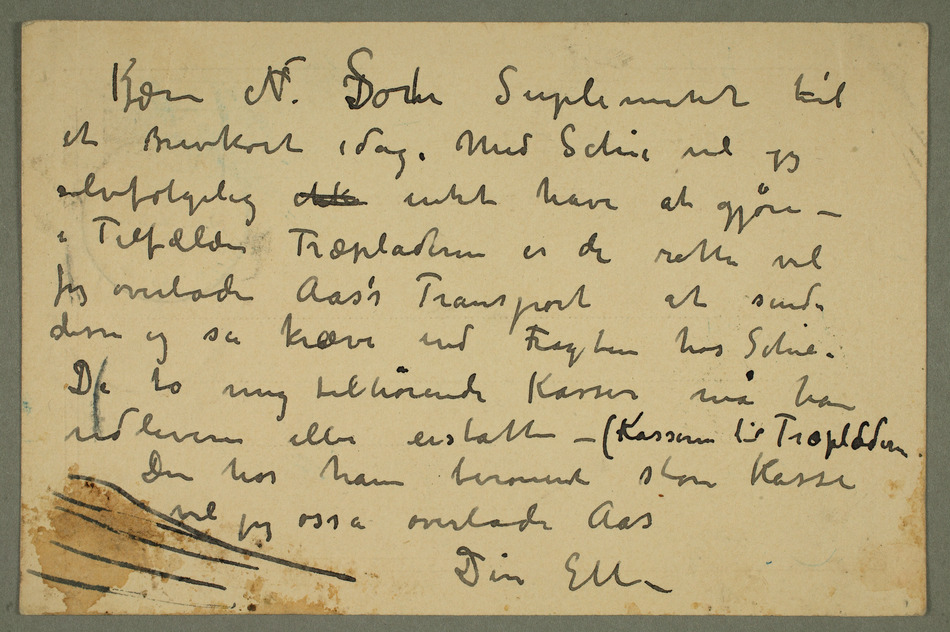 Kjære N. Dette Suplementet til
et Brevkort idag. Med Schie vil jeg
selvfølgelig ikke intet have at gjøre –
i Tilfælde Træpladerne er de rette vil
jeg overlade Aas's Transport at sende
dem og så kræve ind Fragten hos Schie.
De to mig tilhørende Kasser må han
udlevere eller erstatte – (Kasserne til Træpladerne.
Den hos ham beroende store Kasse
vil jeg osså overlade Aas
Din EM